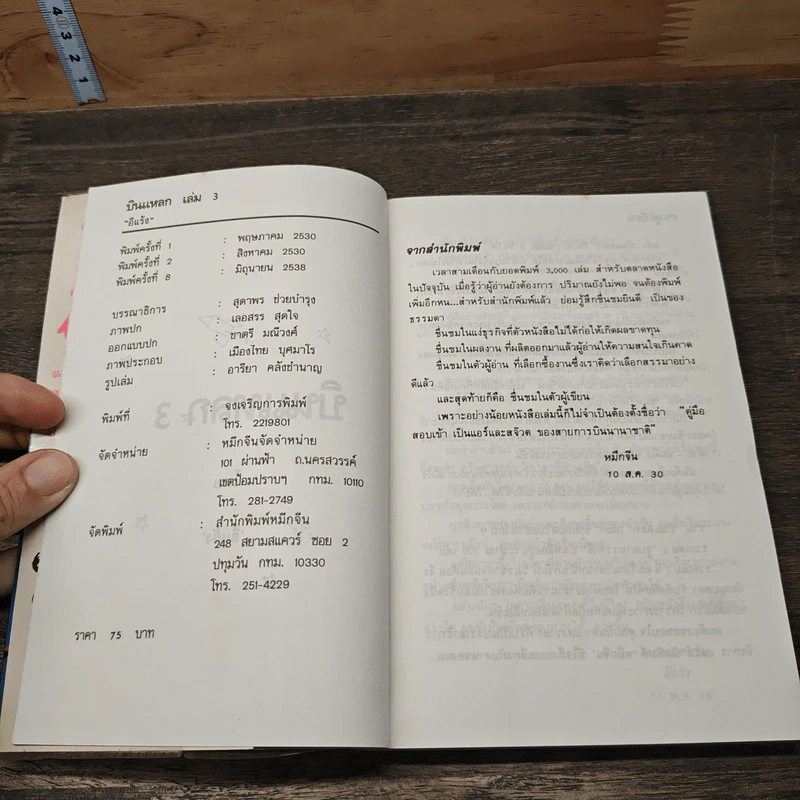 4 3 2 1
บินแหลก เล่ม 3
"อีแร้ง"
พิมพ์ครั้งที่ 1 : พฤษภาคม 2530
พิมพ์ครั้งที่ 2 : สิงหาคม 2530
พิมพ์ครั้งที่ 8 : มิถุนายน 2538
บรรณาธิการ : สุดาพร ช่วยบำรุง
ภาพปก : เลอสรร สุดใจ
ออกแบบปก : ชาตรี มณีวงศ์
ภาพประกอบ : เมืองไทย บุศมาโร
รูปเล่ม : อารียา คลังชำนาญ
พิมพ์ที่ : จงเจริญการพิมพ์
โทร. 2219801
จัดจำหน่าย : หมึกจีนจัดจำหน่าย
101 ผ่านฟ้า ถ.นครสวรรค์
เขตป้อมปราบฯ กทม. 10110
โทร. 281-2749
จัดพิมพ์ : สำนักพิมพ์หมึกจีน
248 สยามสแควร์ ซอย 2
ปทุมวัน กทม. 10330
โทร. 251-4229
ราคา 75 บาท
จากสำนักพิมพ์
เวลาสามเดือนกับยอดพิมพ์ 3,000 เล่ม สำหรับตลาดหนังสือ
ในปัจจุบัน เมื่อรู้ว่าผู้อ่านยังต้องการ ปริมาณยังไม่พอ จนต้องพิมพ์
เพิ่มอีกหน...สำหรับสำนักพิมพ์แล้ว ย่อมรู้สึกชื่นชมยินดี เป็นของ
ธรรมดา
ชื่นชมในแง่ธุรกิจที่ตัวหนังสือไม่ได้ก่อให้เกิดผลขาดทุน
ชื่นชมในผลงาน ที่ผลิตออกมาแล้วผู้อ่านให้ความสนใจเกินคาด
ชื่นชมในตัวผู้อ่าน ที่เลือกซื้องานซึ่งเราคิดว่าเลือกสรรมาอย่าง
ดีแล้ว
และสุดท้ายก็คือ ชื่นชมในตัวผู้เขียน
เพราะอย่างน้อยหนังสือเล่มนี้ก็ไม่จำเป็นต้องตั้งชื่อว่า "คู่มือ
สอบเข้า เป็นแอร์และสจ๊วต ของสายการบินนานาชาติ"
หมึกจีน
10 ส.ค. 30